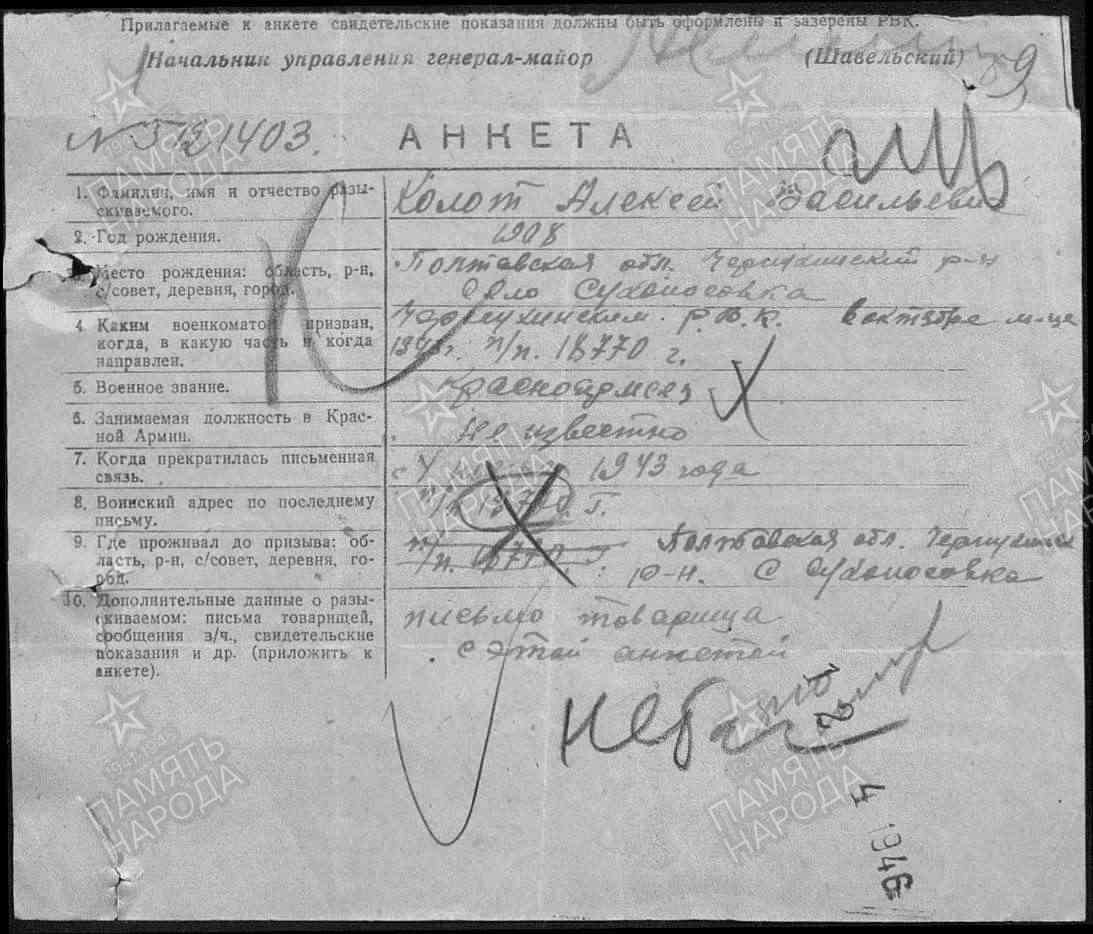 Прилагаемые к анкете свидетельские показания должны быть оформлены и заверены РВК.
Начальник управления генерал-майор (Шавельский)
9
1403.
АНКЕТА
1. Фамилия, имя и отчество разы-
скиваемого.
Холот Алексей Васильевич
2. Год рождения.
1908
3. Место рождения: область, р-н,
с/совет, деревня, город.
Полтавская обл. Чернухинский р-н
село Сухоносовка
4. Каким военкоматом призван,
когда, в какую часть и когда
направлен.
Чернухинским Р.В.К. В октябре м-це
1943г. п/п. 18770 г.
5. Военное звание.
Красноармеец
6. Занимаемая должность в Крас-
ной Армии.
Не известно
7. Когда прекратилась письменная
связь.
1943 года
8. Воинский адрес по последнему
письму.
п/п 18770. Г.
9. Где проживал до призыва: об-
ласть, р-н, с/совет, деревня, го-
род.
п/п. 18770. Полтавская обл. Чернухинский
р-н. с Сухоносовка
10. Дополнительные данные о разы-
скиваемом: письма товарищей,
сообщения в/ч, свидетельские
показания и др. (приложить к
анкете).
письмо товарища
с этой анкетой
4 1946
ПАМЯТЬ
НАРОДА